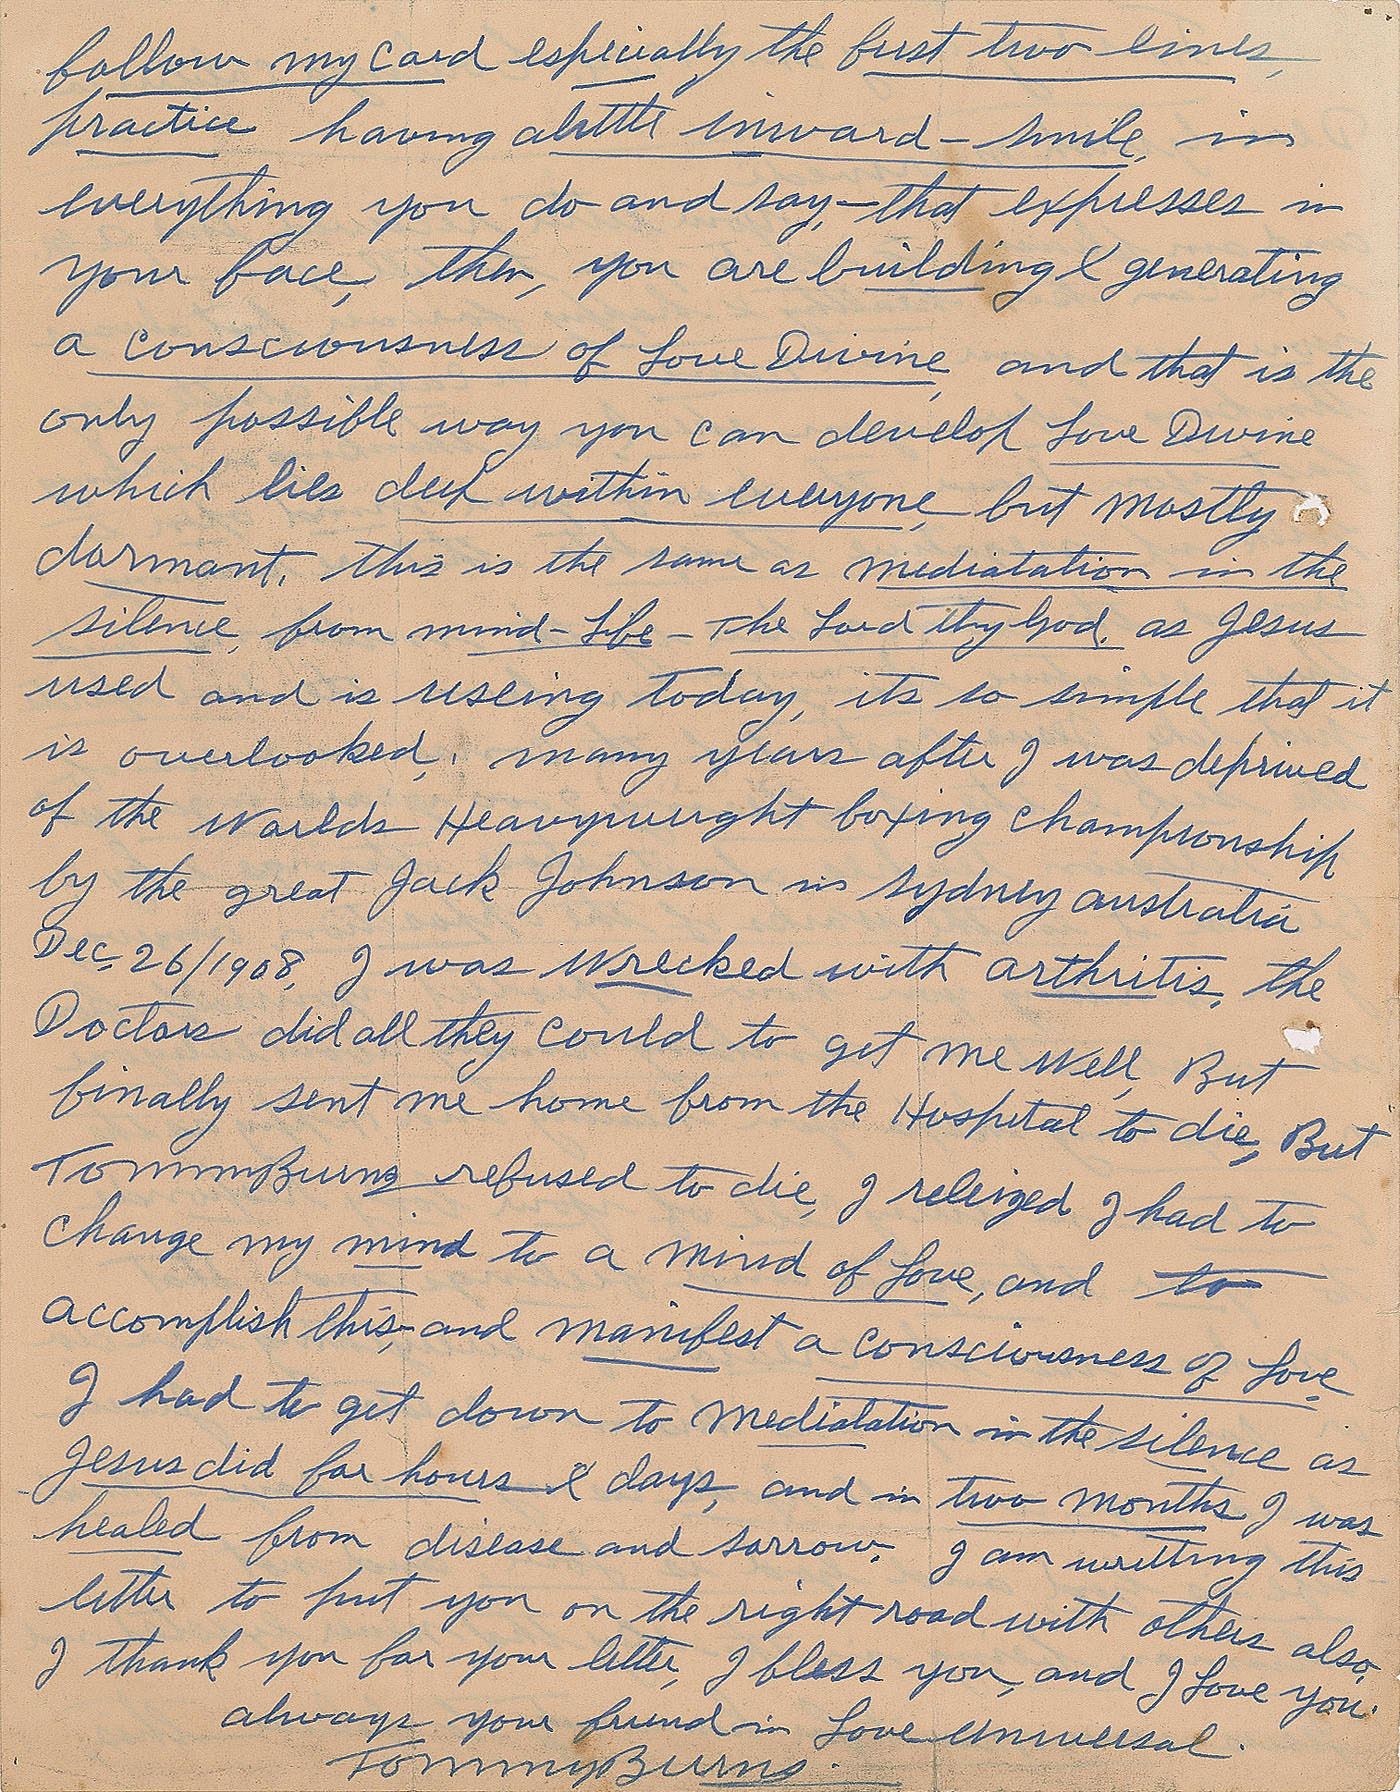 follow my card especially the first two lines,
practice having alittle inward-smile, in
everything you do and say,-that expresses in
your face, then, you are building & generating
a consciousness of Love Divine, and that is the
only possible way you can develop Love Divine
which lies deep within everyone, but mostly
dormant. this is the same as mediatation in the
silence, from mind-Life-The Lord thy God, as Jesus
used and is useing today, its so simple that it
is overlooked, many years after I was deprived
of the Worlds Heavyweight boxing championship
by the great Jack Johnson in Sydney australia
Dec. 26/1908, I was wrecked with arthritis, the
Doctors did all they could to get me well, But
finally sent me home from the Hospital to die, But
Tommy Burns refused to die, I releized I had to
change my mind to a mind of Love, and to
accomplish this, and manifest a consciousness of Love
I had to get down to mediatation in the silence as
Jesus did for hours & days, and in two months I was
healed from disease and sorrow. I am writting this
letter to put you on the right road with others also,
I thank you for your letter, I bless you, and I Love you.
always your friend in Love universal.
Tommy Burns.